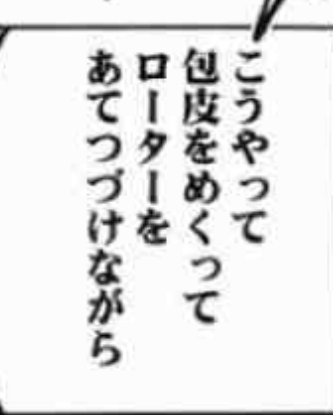 こうやって
包皮をめくって
ローターを
あてつづけながら